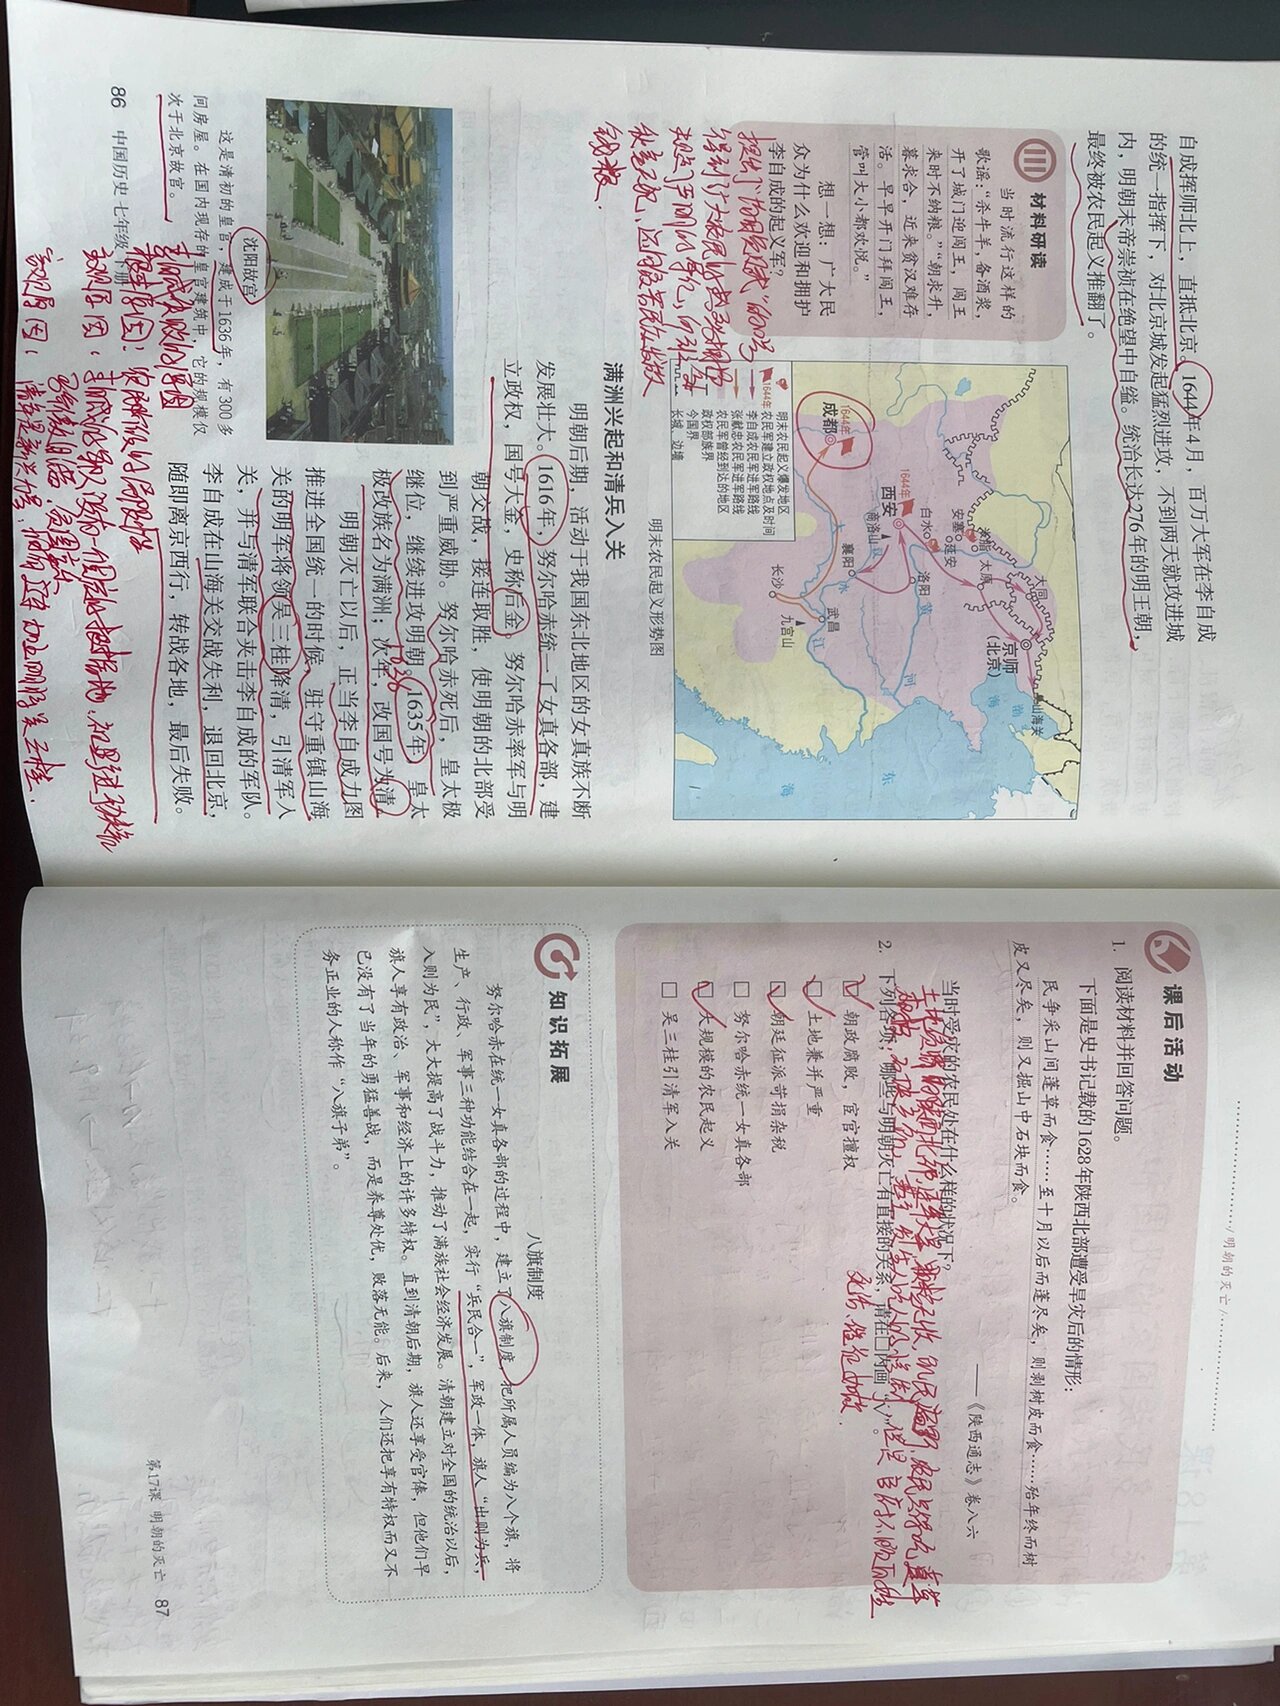 自成挥师北上，直抵北京。1644年4月，百万大军在李自成
的统一指挥下，对北京城发起猛烈进攻，不到两天就攻进城
内，明朝末帝崇祯在绝望中自缢。统治长达276年的明王朝，
最终被农民起义推翻了。
材料研读
当时流行这样的
歌谣：“杀牛羊，备酒浆，
开了城门迎闯王，闯王
来时不纳粮。”“朝求升，
暮求合，近来贫汉难存
活。早早开门拜闯王，
管叫大小都欢悦。”
想一想：广大民
众为什么欢迎和拥护
李自成的起义军？
钱粮．
1644年
成都
1644年
西安
白水
安塞
米脂
延安
太原
大同
京师
（北京）
山海关
渤
海
商洛山
襄阳
洛阳
黄
河
水
武昌
长
江
长沙
九宫山
东
海
明末农民起义爆发地区
1644年 农民军建立政权地点及时间
李自成农民军进军路线
张献忠农民军进军路线
农民军曾经到达的地区
政权部族界
今国界
长城 边墙
明末农民起义形势图
满洲兴起和清兵入关
明朝后期，活动于我国东北地区的女真族不断
发展壮大。1616年，努尔哈赤统一了女真各部，建
立政权，国号大金，史称后金。努尔哈赤率军与明
朝交战，接连取胜，使明朝的北部受
到严重威胁。努尔哈赤死后，皇太极
继位，继续进攻明朝。1635年，皇太
1636
极改族名为满洲；次年，改国号为清。
明朝灭亡以后，正当李自成力图
推进全国统一的时候，驻守重镇山海
关的明军将领吴三桂降清，引清军入
关，并与清军联合夹击李自成的军队。
李自成在山海关交战失利，退回北京，
随即离京西行，转战各地，最后失败。
沈阳故宫
这是清初的皇宫，建成于1636年，有300多
间房屋。在国内现存的皇宫建筑中，它的规模仅
次于北京故宫。
李自成失败的原因
根本原因：农民阶级的局限性
客观原因：
86 中国历史 七年级 下册
明朝的灭亡
课后活动
1. 阅读材料并回答问题。
下面是史书记载的1628年陕西北部遭受旱灾后的情形：
民争采山间蓬草而食……至十月以后而蓬尽矣，则剥树皮而食……殆年终而树
皮又尽矣，则又掘山中石块而食。
——《陕西通志》卷八六
当时受灾的农民处在什么样的状况下？
2. 下列各项，哪些与明朝灭亡有直接的关系，请在□内画“√”。
☑ 朝政腐败，宦官擅权
☑ 土地兼并严重
☑ 朝廷征派苛捐杂税
□ 努尔哈赤统一女真各部
☑ 大规模的农民起义
□ 吴三桂引清军入关
知识拓展
八旗制度
努尔哈赤在统一女真各部的过程中，建立了八旗制度，把所属人员编为八个旗，将
生产、行政、军事三种功能结合在一起，实行“兵民合一”，军政一体，旗人“出则为兵，
入则为民”，大大提高了战斗力，推动了满族社会经济发展。清朝建立对全国的统治以后，
旗人享有政治、军事和经济上的许多特权。直到清朝后期，旗人还享受官俸，但他们早
已没有了当年的勇猛善战，而是养尊处优，败落无能。后来，人们还把享有特权而又不
务正业的人称作“八旗子弟”。
第17课 明朝的灭亡 87